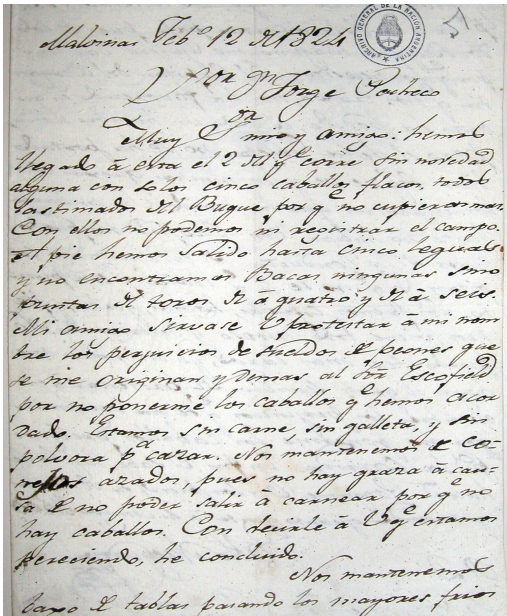 ARCHIVO GENERAL DE LA NACION ARGENTINA
Malvinas Febº 12 de 1824
Sor Dn Jorge Pacheco
Muy Sor mio y amigo: hemos
llegado á esta el 2 del qe corre sin novedad
alguna con solos cinco caballos flacos, todos
lastimados del Buque por qe no cupieron mas.
Con ellos no podemos ni registrar el campo.
A pie hemos salido hasta cinco leguas
y no encontramos Bacas ningunas sino
puntas de toros de á quatro y de á seis.
Mi amigo sirvase V protestar á mi nom
bre los perjuicios de sueldos de peones que
se me originan y demas al Sor Escofield
por no ponerme los caballos qe hemos acor
dado. Estamos sin carne, sin galleta, y sin
polvora pa cazar. Nos mantenemos de co-
nejos azados, pues no hay graza á cau-
sa de no poder salir á carnear por qe no
hay caballos. Con decirle á V qe estamos
pereciendo, he concluido.
Nos mantenemos
baxo de tablas pasando los mayores frios